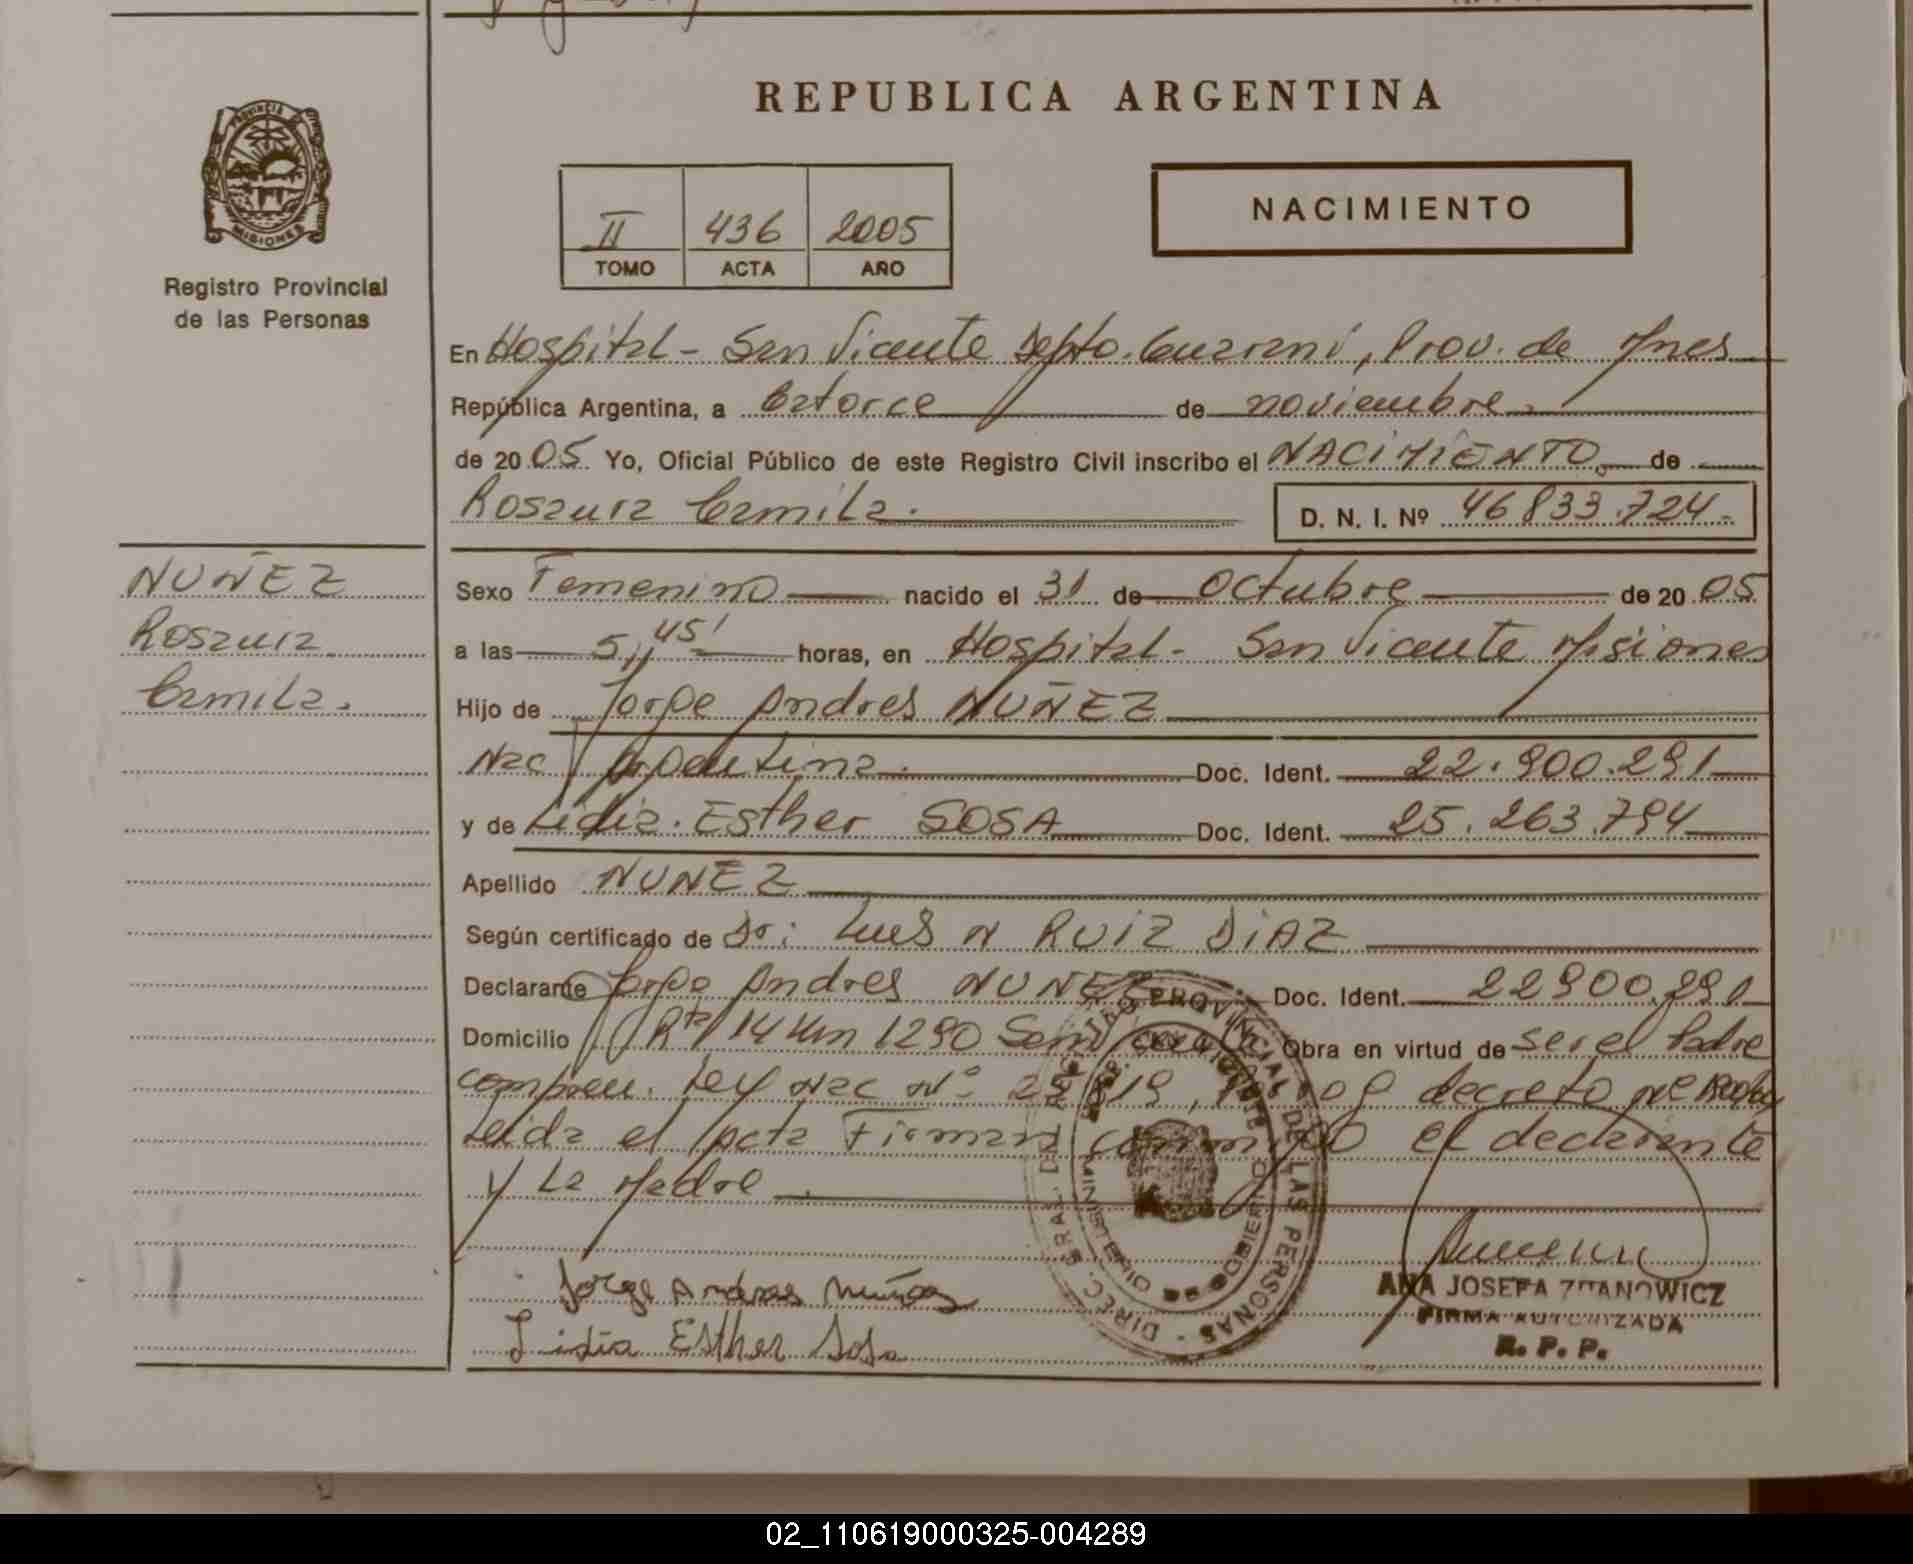 REPUBLICA ARGENTINA
PROVINCIA DE MISIONES
Registro Provincial
de las Personas
II 436 2005
TOMO ACTA AÑO
NACIMIENTO
En Hospital - San Vicente Depto. Guarani, Prov. de Mnes
República Argentina, a Catorce de noviembre
de 2005 Yo, Oficial Público de este Registro Civil inscribo el NACIMIENTO de
Rosaura Camila. D. N. I. Nº 46833.724
NUÑEZ
Rosaura
Camila.
Sexo Femenino nacido el 31 de Octubre de 2005
a las 5,45' horas, en Hospital - San Vicente Misiones
Hijo de Jorge Andres NUÑEZ
Nac Argentina. Doc. Ident. 22.900.291
y de Lidia Esther SOSA Doc. Ident. 25.263.794
Apellido NUÑEZ
Según certificado de Dr: Luis N RUIZ DIAZ
Declarante Jorge Andres NUÑEZ Doc. Ident. 22900.291
Domicilio Rta 14 Km 1290 San Vicente Obra en virtud de ser el Padre
Ley Nac Nº decreto
Leida el acta Firman conmigo el declarante
y La Madre
Jorge Andres Nuñez
Lidia Esther Sosa
DIREC. GRAL. DEL REGISTRO PROVINCIAL DE LAS PERSONAS
MINISTERIO DE GOBIERNO
ANA JOSEFA ZDANOWICZ
FIRMA AUTORIZADA
R. P. P.
02_110619000325-004289